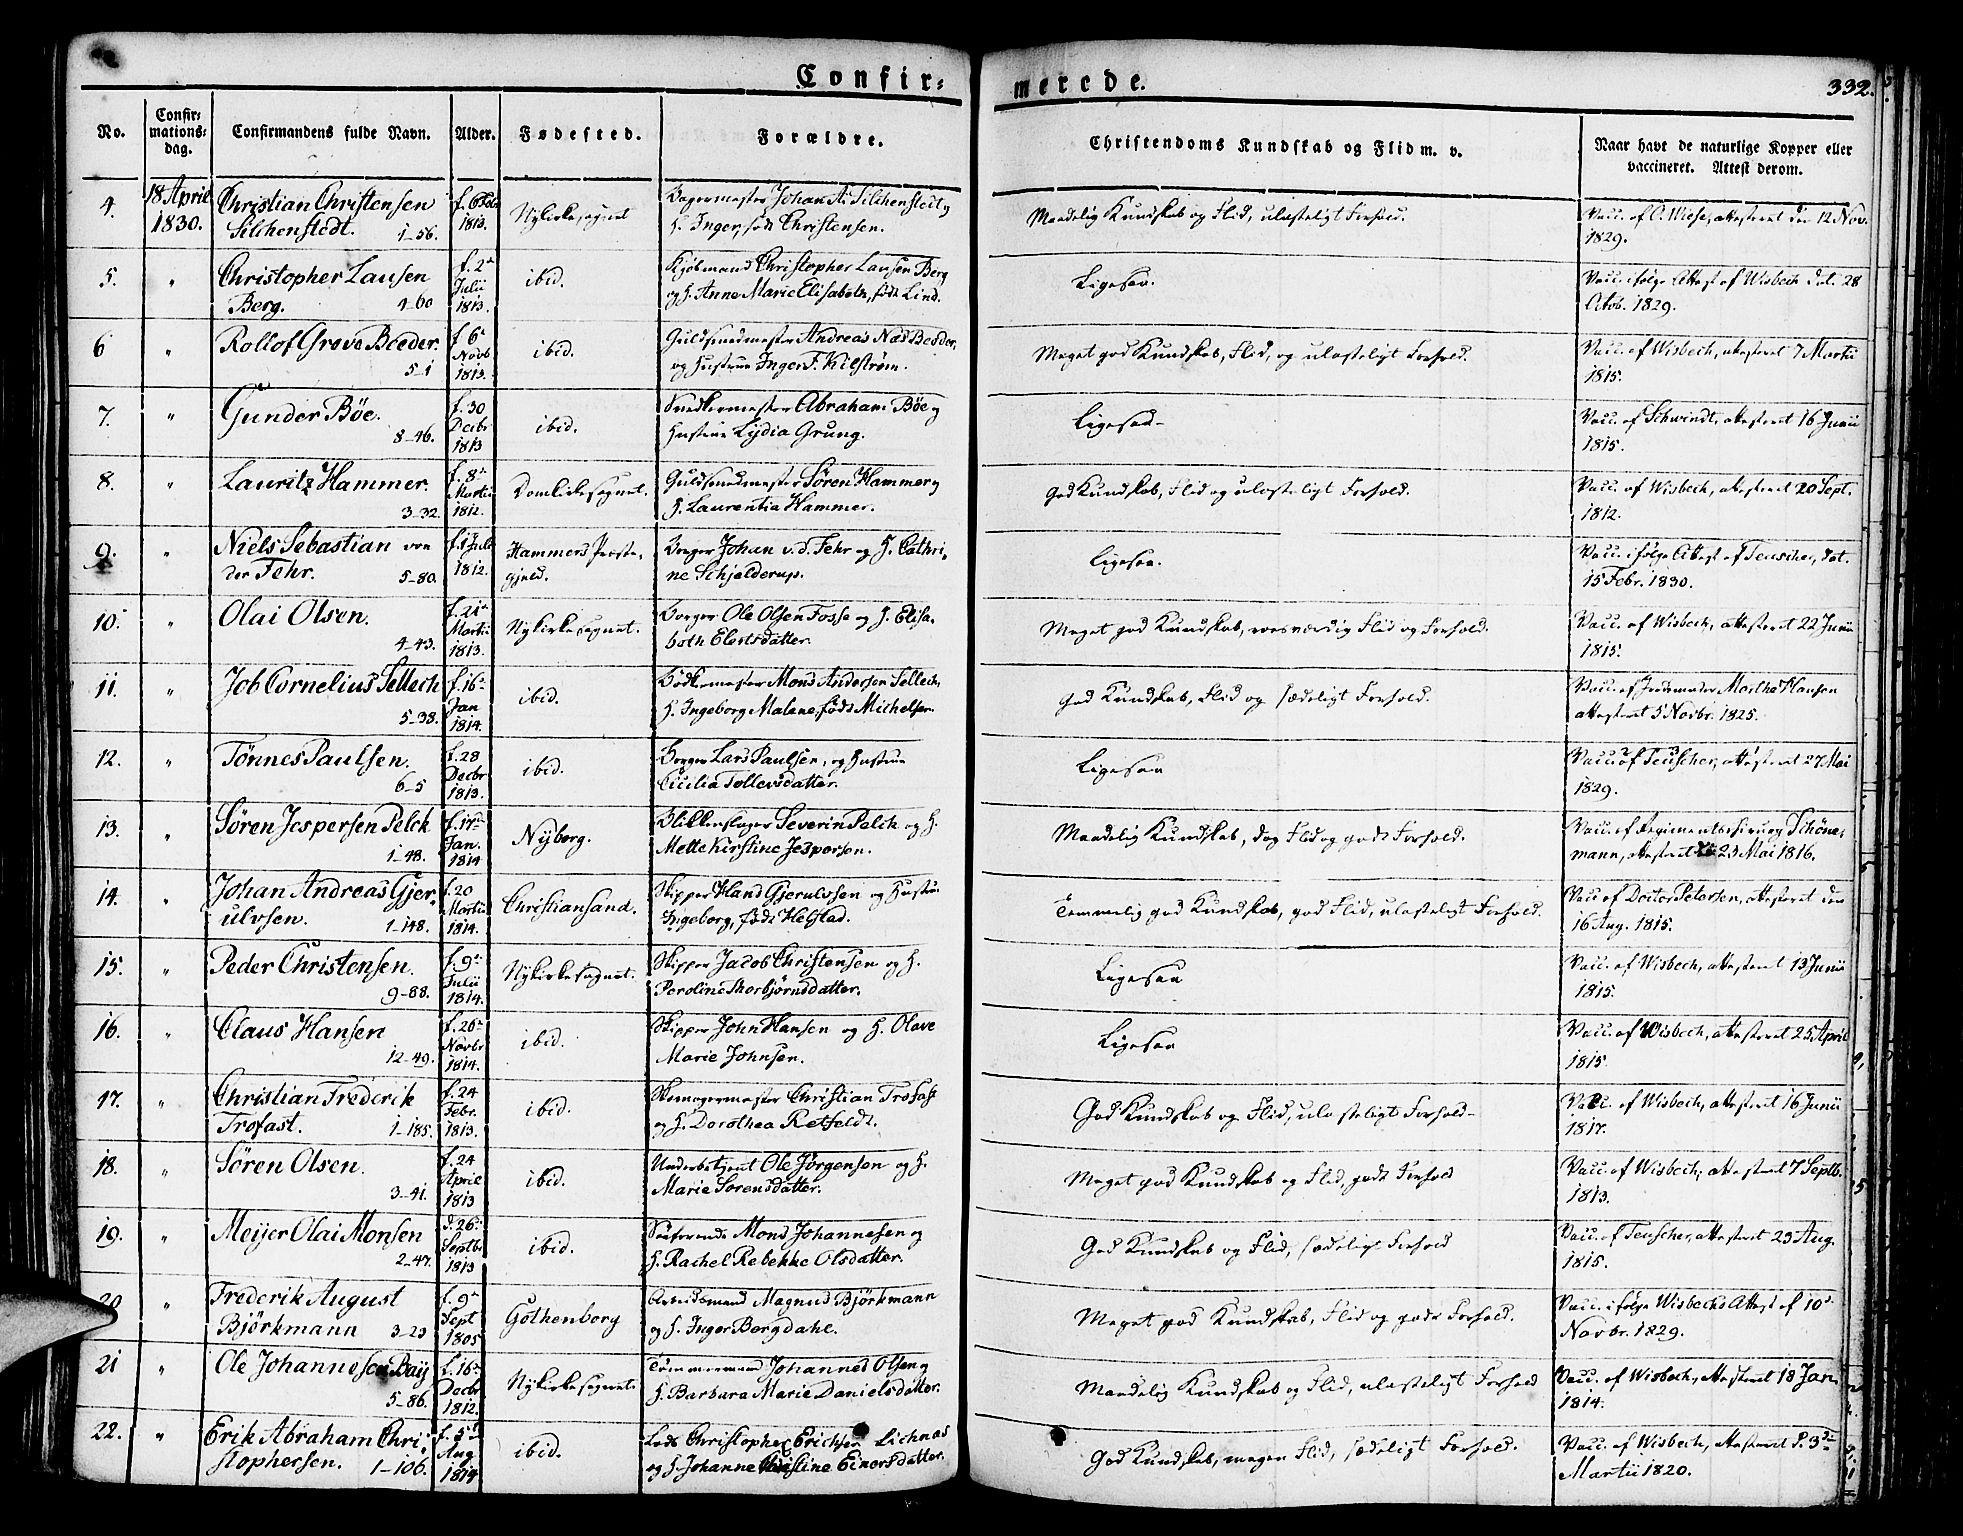 Confir=
merede.
332.
No.
Confir=
mations=
dag.
Confirmandens fulde Navn.
Alder.
Fødested.
Forældre.
Christendoms Kundskab og Flid m. v.
Naar havt de naturlige Kopper eller
vaccineret. Attest derom.
4.
18 April
1830.
Christian Christensen
Silchenstedt. 1-56.
f. 6 Feb
1813.
Nykirkesognet
Bagermester Johan A. Silchenstedt og
H. Inger, født Christensen.
Maadelig Kundskab og Flid, ulasteligt Forhold.
Vacc. af C. Wiese, attesteret den 12 Nov.
1829.
5. "
Christopher Lausen
Berg. 4-60
f. 2n
Julii
1813.
ibid.
Kjøbmand Christopher Lausen Berg
og H. Anne Marie Elisabeth, født Lind.
Ligesaa.
Vacc. ifølge Attest af Wisbech dat. 28
Octob. 1829.
6 "
Rollof Greve Bøeder.
5-1
f. 6n
Novb
1813.
ibid.
Guldsmedmester Andreas Næs Bøeder,
og Hustrue Inger F. Kilstrøm.
Meget god Kundskab, Flid, og ulasteligt Forhold.
Vacc. af Wisbech, attesteret 7 Martii
1815.
7. "
Gunder Bøe.
8-46.
f. 30
Decbr
1813
ibid.
Snedkermester Abraham Bøe og
Hustrue Lydia Grung.
Ligesaa-
Vacc. af Schwindt, attesteret 16 Junii
1815.
8. "
Lauritz Hammer.
3-32.
f. 8n
Martii
1812.
Domkirkesognet.
Guldsmedmester Søren Hammer og
H. Laurentia Hammer.
God Kundskab, Flid og ulasteligt Forhold.
Vacc. af Wisbech, attesteret 20 Sept.
1812.
9. "
Niels Sebastian von
der Fehr. 5-80.
f. 1 Juli
1812.
Hammers Præste-
gjeld.
Borger Johan v. d. Fehr og H. Cathri-
ne Schjelderup.
Ligesaa.
Vacc. ifølge Attest af Teuscher, dat.
15 Febr. 1830.
10. "
Olai Olsen.
4-43.
f. 21n
Martii
1813.
Nykirkesognet.
Borger Ole Olsen Fosse og H. Elisa-
beth Elertsdatter.
Meget god Kundskab, roesværdig Flid og Forhold.
Vacc. af Wisbech, attesteret 22 Junii
1815.
11. "
Job Cornelius Sellech
5-38.
f. 16n
Jan
1814.
ibid.
Bødkermester Mons Andersen Sellech,
H. Ingeborg Malene, født Michelsen.
God Kundskab, Flid og sædeligt Forhold.
Vacc. af Jordemoder Martha Hansen
attesteret 5 Novbr. 1825.
12. "
Tønnes Paulsen.
6-5
f. 28
Decbr
1813.
ibid.
Borger Lars Paulsen, og Hustrue
Cicilia Tollevsdatter.
Ligesaa
Vacc. af Teuscher, attesteret 27 Mai
1829.
13. "
Søren Jespersen Pelck
1-48.
f. 17n
Jan.
1814
Nyborg.
Blikkenslager Severin Pelck og H.
Mette Kirstine Jespersen.
Maadelig Kundskab, dog Flid og godt Forhold.
Vacc. af Regimentschirurg Schöne-
mann, attesteret 23 Mai 1816.
14. "
Johan Andreas Gjer-
ulvsen. 1-148.
f. 20
Martii
1814.
Christiansand.
Skipper Hans Gjerulvsen og Hustrue
Ingeborg, født Helstad.
Temmelig god Kundskab, god Flid, ulasteligt Forhold.
Vacc af Doctor Petersen, attesteret den
16 Aug. 1815.
15. "
Peder Christensen.
9-88.
f. 9n
Julii
1814.
Nykirkesognet.
Skipper Jacob Christensen og H.
Peroline Thorbjørnsdatter.
Ligesaa
Vacc. af Wisbech, attesteret 13 Junii
1815.
16. "
Claus Hansen
12-49.
f. 26n
Novbr
1814.
ibid.
Skipper John Hansen og H. Olave
Marie Johnsen.
Ligesaa
Vacc. af Wisbech, attesteret 25 April
1815.
17. "
Christian Frederik
Trofast. 1-185.
f. 24
Febr.
1813.
ibid.
Skomagermester Christian Trofast
og H. Dorothea Retfeldt.
God Kundskab og Flid, ulasteligt Forhold-
Vacc. af Wisbech, attesteret 16 Junii
1817.
18. "
Søren Olsen.
3-41.
f. 24
April
1813
ibid.
Underbetjent Ole Jörgensen og H.
Marie Sørensdatter.
Meget god Kundskab og Flid, godt Forhold
Vacc. af Wisbech, attesteret 7 Septb.
1813.
19. "
Meijer Olai Monsen
2-47.
d. 26n
Septbr
1813
ibid.
Søefarende Mons Johannesen og
H. Rachel Rebekke Olsdatter.
God Kundskab og Flid, sædeligt Forhold
Vacc. af Teuscher, attesteret 23 Aug.
1815.
20 "
Frederik August
Björkmann 3-23
f. 9n
Sept
1805
Gothenborg
Arbeidsmand Magnus Björkmann
og H. Inger Bergdahl.
Meget god Kundskab, Flid og godt Forhold.
Vacc. ifølge Wisbechs Attest af 10d
Novbr. 1829.
21 "
Ole Johannesen Baij
5-86.
f. 16n
Decbr
1812.
Nykirkesognet
Tømmermand Johannes Olsen og
H. Barbara Marie Danielsdatter.
Maadelig Kundskab og Flid, ulasteligt Forhold
Vacc. af Wisbech, attesteret 18 Jan.
1814.
22. "
Erik Abraham Chri-
stophersen. 1-106.
f. 5n
Aug
1814
ibid.
Lods Christopher Erichsen Lichnæs
og H. Johanne Kirstine Einersdatter.
God Kundskab, megen Flid, sædeligt Forhold.
Vacc. af Wisbech, attesteret d. 3
Martii 1820.